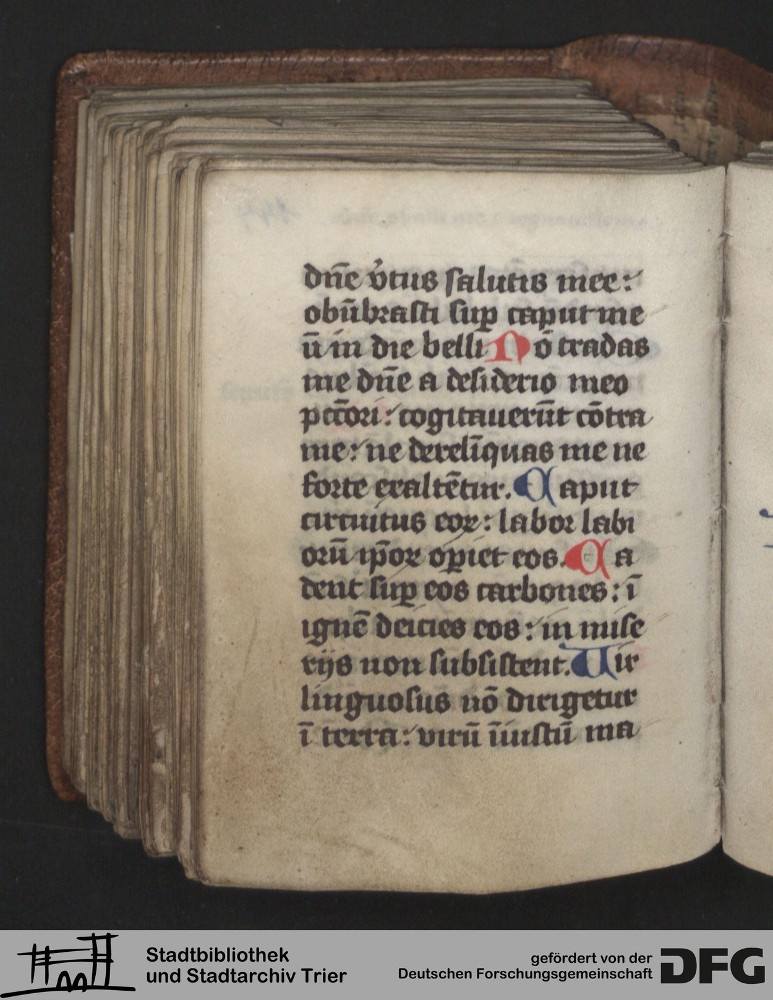 dn̄e v̾tus salutis mee:
obūbrasti suꝑ caput me
ū in die belli Nō tradas
me dn̄e a desiderio meo
pcc̄ori: cogitauerūt cōtra
me: ne derelīquas me ne
forte exaltētur. Caput
circuitus eoꝝ: labor labi
orū ip̄oꝝ op̄iet eos. Ca
dent suꝑ eos carbones: ī
ignē deicies eos: in mise
rijs non subsistent. Uir
linguosus nō dirigetur
ī terra: virū īiustū ma
Stadtbibliothek
und Stadtarchiv Trier
gefördert von der
Deutschen Forschungsgemeinschaft DFG